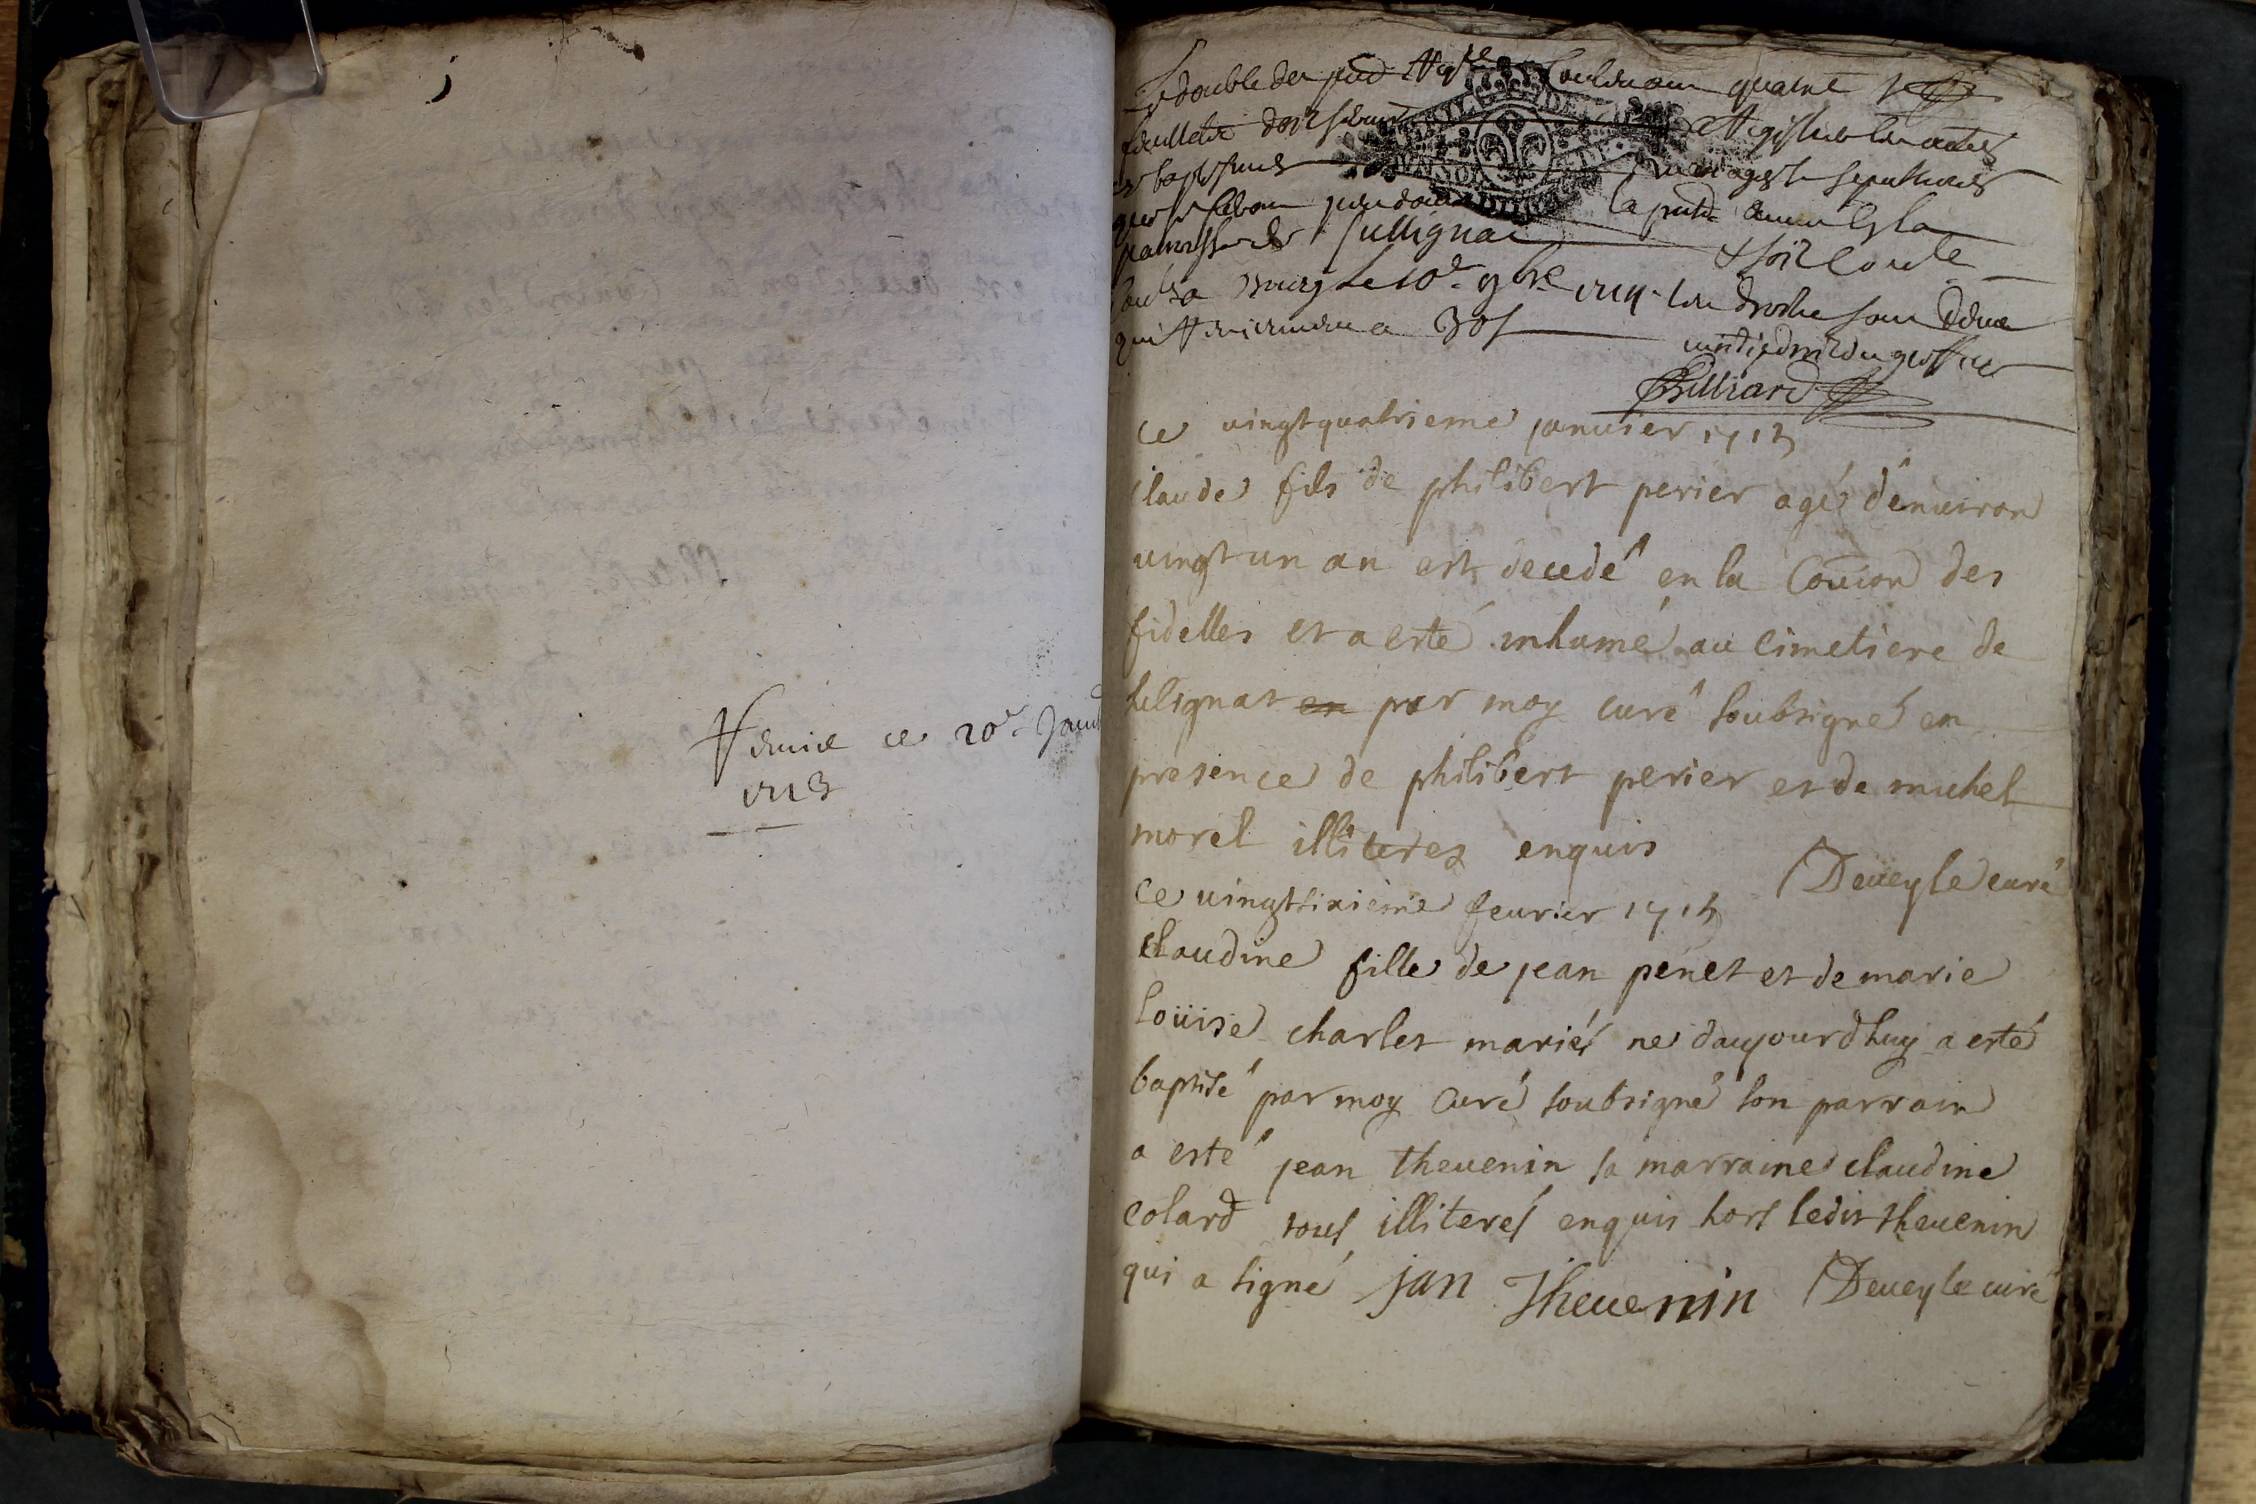 Remise ce 20e Janv
1713
Le double du pnt Regre Contenant quatre
feuillets doit servir a Registrer les actes
de baptesmes mariages et sepultures
qui se feront pendant la pnte année En la
paroisse de Sullignat
fait a Bourg le 10e 9bre 1712 les droits sont
qui reviennent a 30s
Billiard
ce vingtquatrieme janvier 1713
Claude fils de philibert perier agé d'enuiron
vingt un an est decedé en la Coũion des
fidelles et a esté inhumé au cimetiere de
sulignat en par moy curé soubsigné en
presence de philibert perier et de michel
morel illiteres enquis Deueyle curé
ce vingtsixieme feurier 1713
claudine fille de jean penet et de marie
Loüise charlet mariés ne daujourdhuy a esté
baptisé par moy curé soubsigné son parrain
a esté jean theuenin sa marraine claudine
colard tous illiterés enquis hors ledit theuenin
qui a signé jan Theuenin Deueyle curé